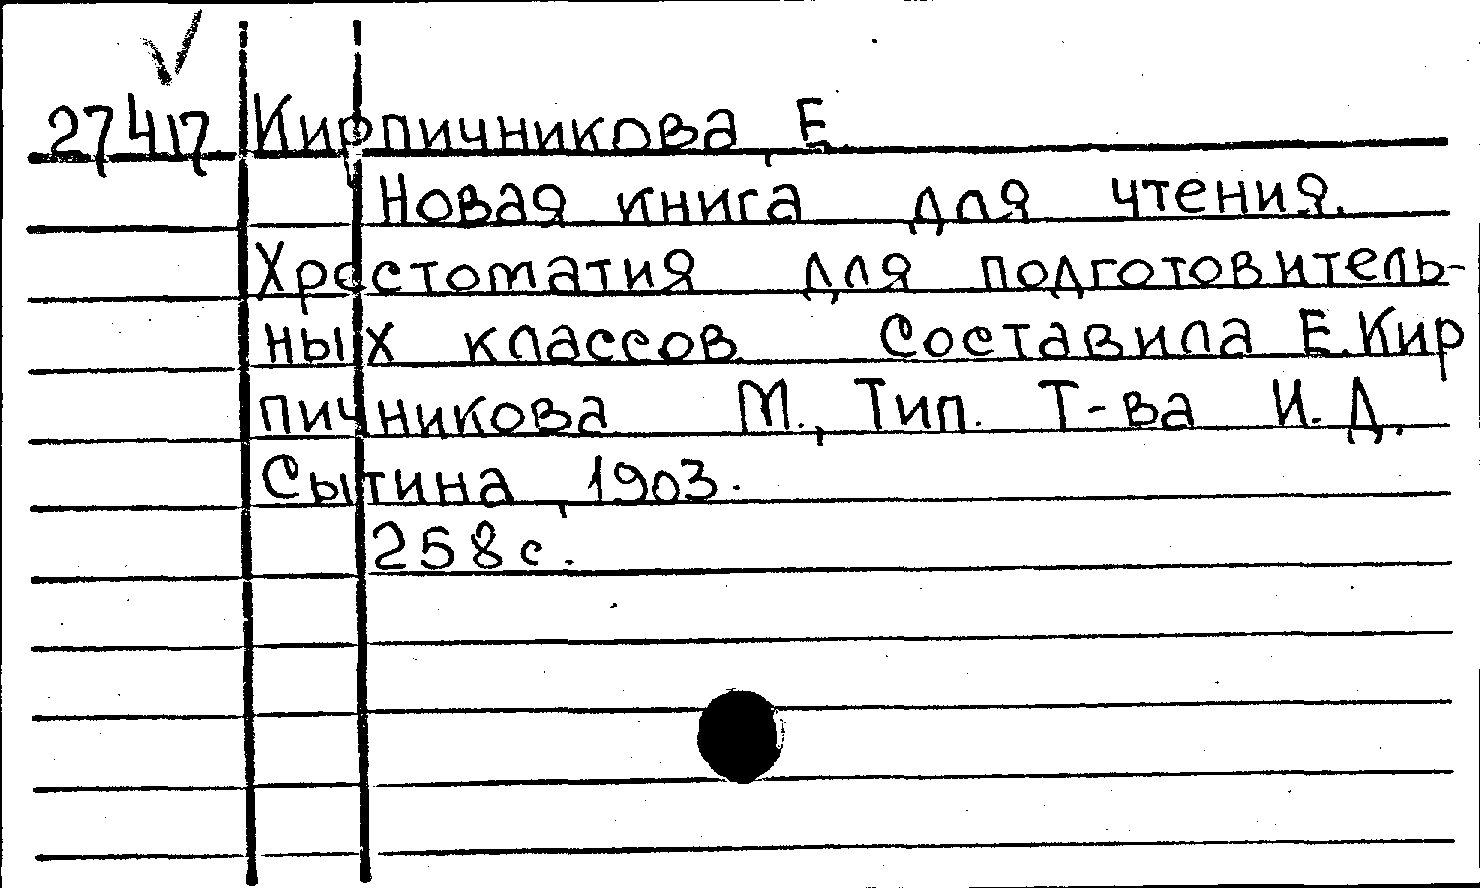 27417 Кирпичникова, Е.
Новая книга для чтения.
Хрестоматия для подготовитель-
ных классов. Составила Е.Кир
пичникова. М., Тип. Т-ва И.Д.
Сытина, 1903.
258 с.